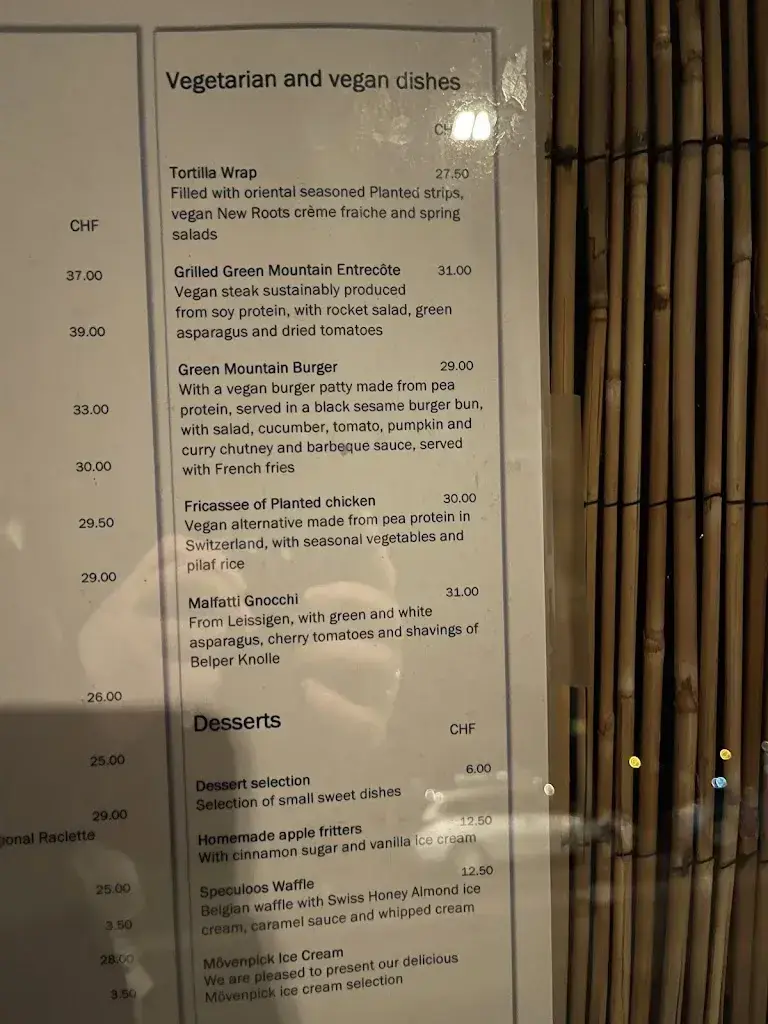 CHF
37.00
39.00
33.00
30.00
29.50
29.00
26.00
25.00
29.00
Raclette
25.00
3.50
28.00
3.50
Vegetarian and vegan dishes
Tortilla Wrap 27.50
Filled with oriental seasoned Planted strips,
vegan New Roots crème fraiche and spring
salads
Grilled Green Mountain Entrecôte 31.00
Vegan steak sustainably produced
from soy protein, with rocket salad, green
asparagus and dried tomatoes
Green Mountain Burger 29.00
With a vegan burger patty made from pea
protein, served in a black sesame burger bun,
with salad, cucumber, tomato, pumpkin and
curry chutney and barbeque sauce, served
with French fries
Fricassee of Planted chicken 30.00
Vegan alternative made from pea protein in
Switzerland, with seasonal vegetables and
pilaf rice
Malfatti Gnocchi 31.00
From Leissigen, with green and white
asparagus, cherry tomatoes and shavings of
Belper Knolle
Desserts
CHF
Dessert selection 6.00
Selection of small sweet dishes
Homemade apple fritters 12.50
With cinnamon sugar and vanilla ice cream
Speculoos Waffle 12.50
Belgian waffle with Swiss Honey Almond ice
cream, caramel sauce and whipped cream
Mövenpick Ice Cream
We are pleased to present our delicious
Mövenpick ice cream selection